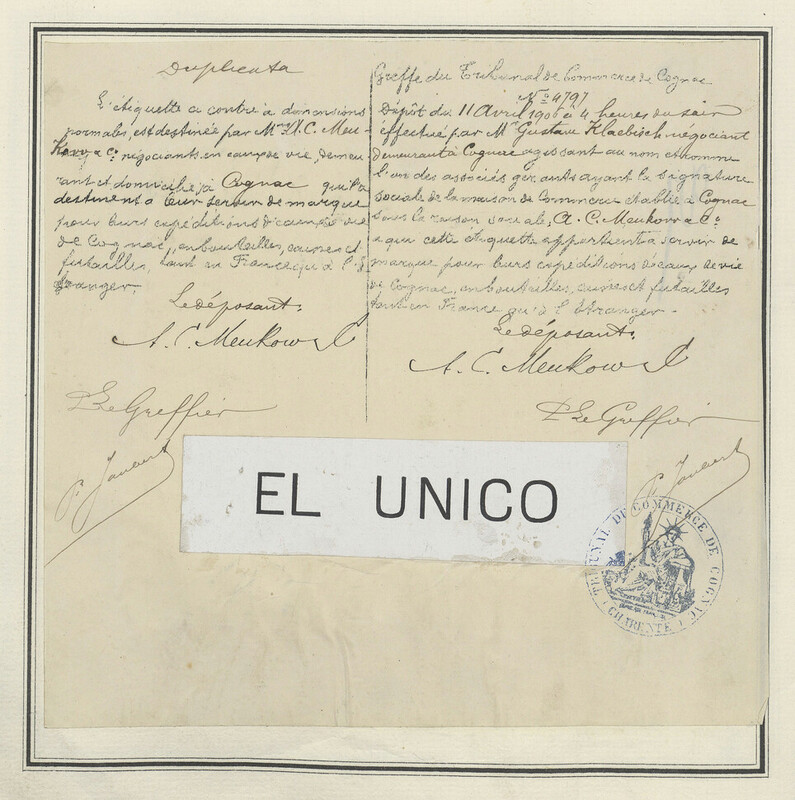 Duplicata
L'étiquette ci contre à dimensions
normales, est destinée par Mrs A. C. Meu-
Kow & Co négociants en eaux de vie, demeu
rant et domiciliés à Cognac qui l'a
destinent à leur servir de marque
pour leurs expéditions d'eaux de vie
de Cognac, en bouteilles, caisses et
futailles, tant en France qu'à l'é
tranger.
Le déposant:
A. C. Meukow & Co
P. Le Greffier
Greffe du Tribunal de Commerce de Cognac
No 4797
Dépôt du 11 Avril 1906 à 4 heures du soir
effectué par Mr Gustave Klaebisch négociant
demeurant à Cognac agissant au nom et comme
l'un des associés gérants ayant la signature
sociale de la maison de Commerce établie à Cognac
sous la raison sociale, A. C. Meukow & Co
que cette étiquette appartient à servir de
marque pour leurs expéditions d'eaux de vie
de Cognac, en bouteilles, caisses et futailles
tant en France qu'à l'étranger.
Le déposant:
A. C. Meukow & Co
P. Le Greffier
EL UNICO
TRIBUNAL DE COMMERCE DE COGNAC
CHARENTE